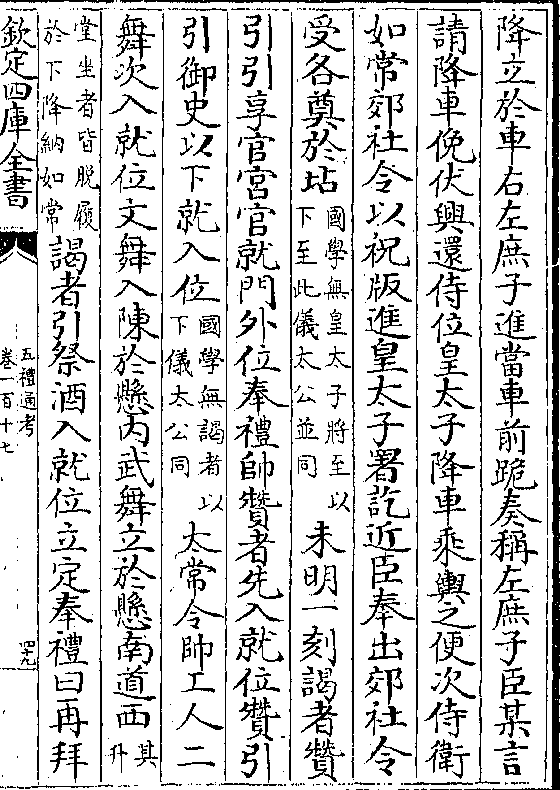 降立於車右左庶子進當車前跪奏稱左庶子臣某言
請降車俛伏興還侍位皇太子降車乘輿之便次侍衛
如常郊社令以祝版進皇太子署訖近臣奉出郊社令
受各奠於坫國學無皇太子將至以下至此儀太公並同未明一刻謁者贊
引引享官宮官就門外位奉禮帥贊者先入就位贊引
引御史以下就入位國學無謁者以下儀太公同太常令帥工人二
舞次入就位文舞入陳於懸内武舞立於懸南道西其升
堂坐者皆脫履於下降納如常謁者引祭酒入就位立定奉禮曰再拜
欽定四庫全書
五禮通考
卷一百十七
四十九